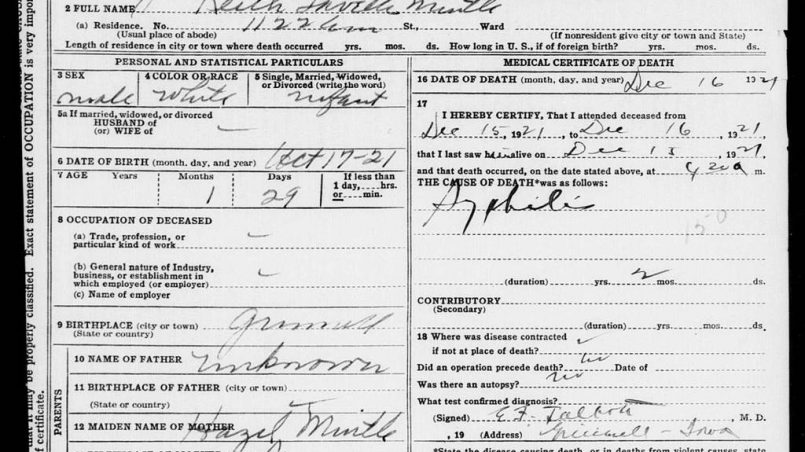 2 FULL NAME Keith Mintle
(a) Residence. No. 1122 Elm St., Ward
(Usual place of abode) (If nonresident give city or town and State)
Length of residence in city or town where death occurred yrs. mos. ds. How long in U. S., if of foreign birth? yrs. mos. ds.
PERSONAL AND STATISTICAL PARTICULARS
3 SEX 4 COLOR OR RACE 5 Single, Married, Widowed, or Divorced (write the word)
male White Infant
5a If married, widowed, or divorced
HUSBAND of
(or) WIFE of
6 DATE OF BIRTH (month, day, and year) Oct 17-21
7 AGE Years Months Days If less than
1 day, hrs.
or min.
1 29
8 OCCUPATION OF DECEASED
(a) Trade, profession, or
particular kind of work
(b) General nature of Industry,
business, or establishment in
which employed (or employer)
(c) Name of employer
9 BIRTHPLACE (city or town) Grinnell
(State or country)
PARENTS
10 NAME OF FATHER Unknown
11 BIRTHPLACE OF FATHER (city or town)
(State or country)
12 MAIDEN NAME OF MOTHER Hazel Mintle
MEDICAL CERTIFICATE OF DEATH
16 DATE OF DEATH (month, day, and year) Dec 16 1921
17
I HEREBY CERTIFY, That I attended deceased from
Dec 15, 1921, to Dec 16, 1921,
that I last saw him alive on Dec 15, 1921,
and that death occurred, on the date stated above, at m.
THE CAUSE OF DEATH* was as follows:
Syphilis
150
(duration) yrs. 2 mos. ds.
CONTRIBUTORY
(Secondary)
(duration) yrs. mos. ds.
18 Where was disease contracted
if not at place of death?
Did an operation precede death? no Date of
Was there an autopsy? no
What test confirmed diagnosis?
(Signed) E F Talbott, M. D.
, 19 (Address) Grinnell - Iowa
*State the disease causing death, or in deaths from violent causes, state
it may be properly classified. Exact statement of OCCUPATION is very
of certificate.